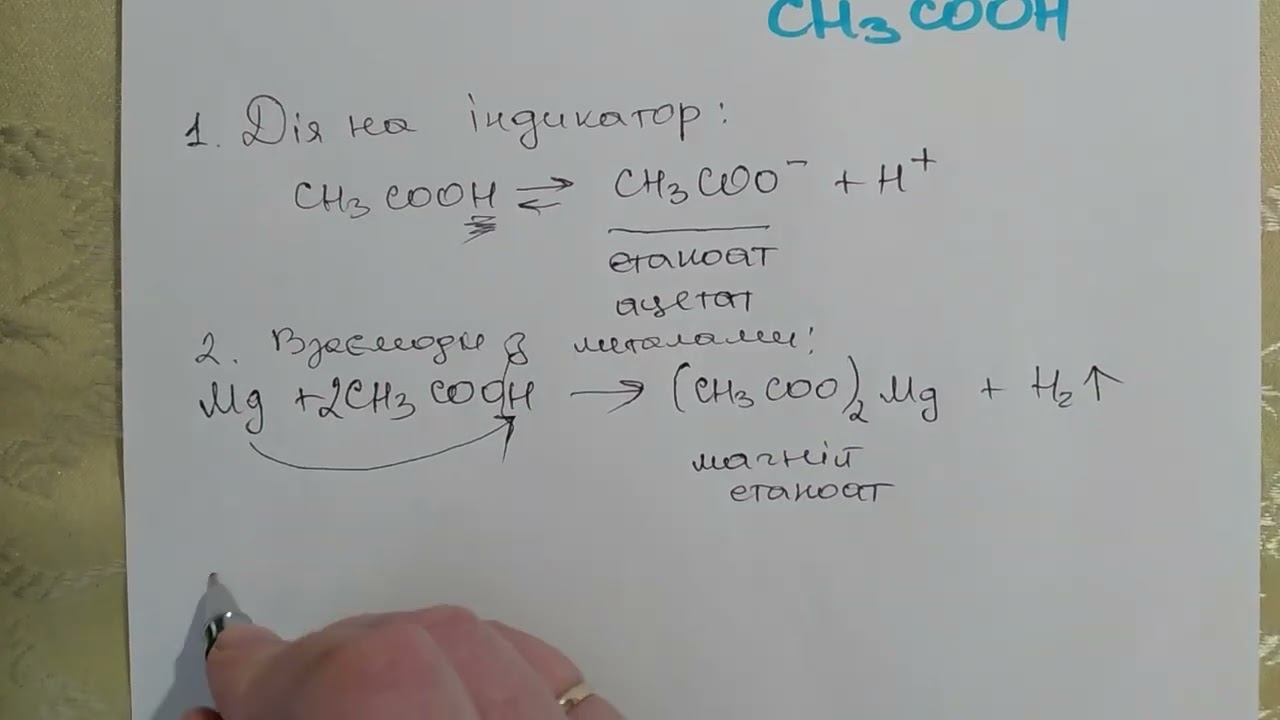 CH₃COOH
1. Дія на індикатор:
CH₃COOH ⇌ CH₃COO⁻ + H⁺
етаноат
ацетат
2. Взаємодія з металами:
Mg + 2CH₃COOH → (CH₃COO)₂Mg + H₂↑
магній
етаноат